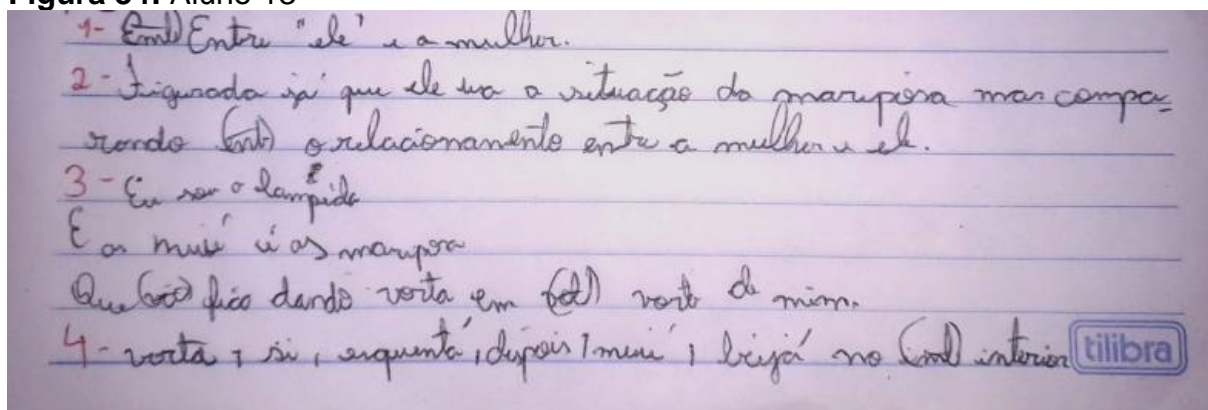 Figura 34. Aluno 18
1- (Ent) Entre "ele" e a mulher.
2- Figurada já que ele usa a situação da mariposa mas compa-
rando (ent) o relacionamento entre a mulher e ele.
3- Eu sou o lampido
E as muié é as mariposa
Que fica dando vorta em vorta de mim.
4- vorta, si, esquentá, depois, muié, beijá no interior tilibra